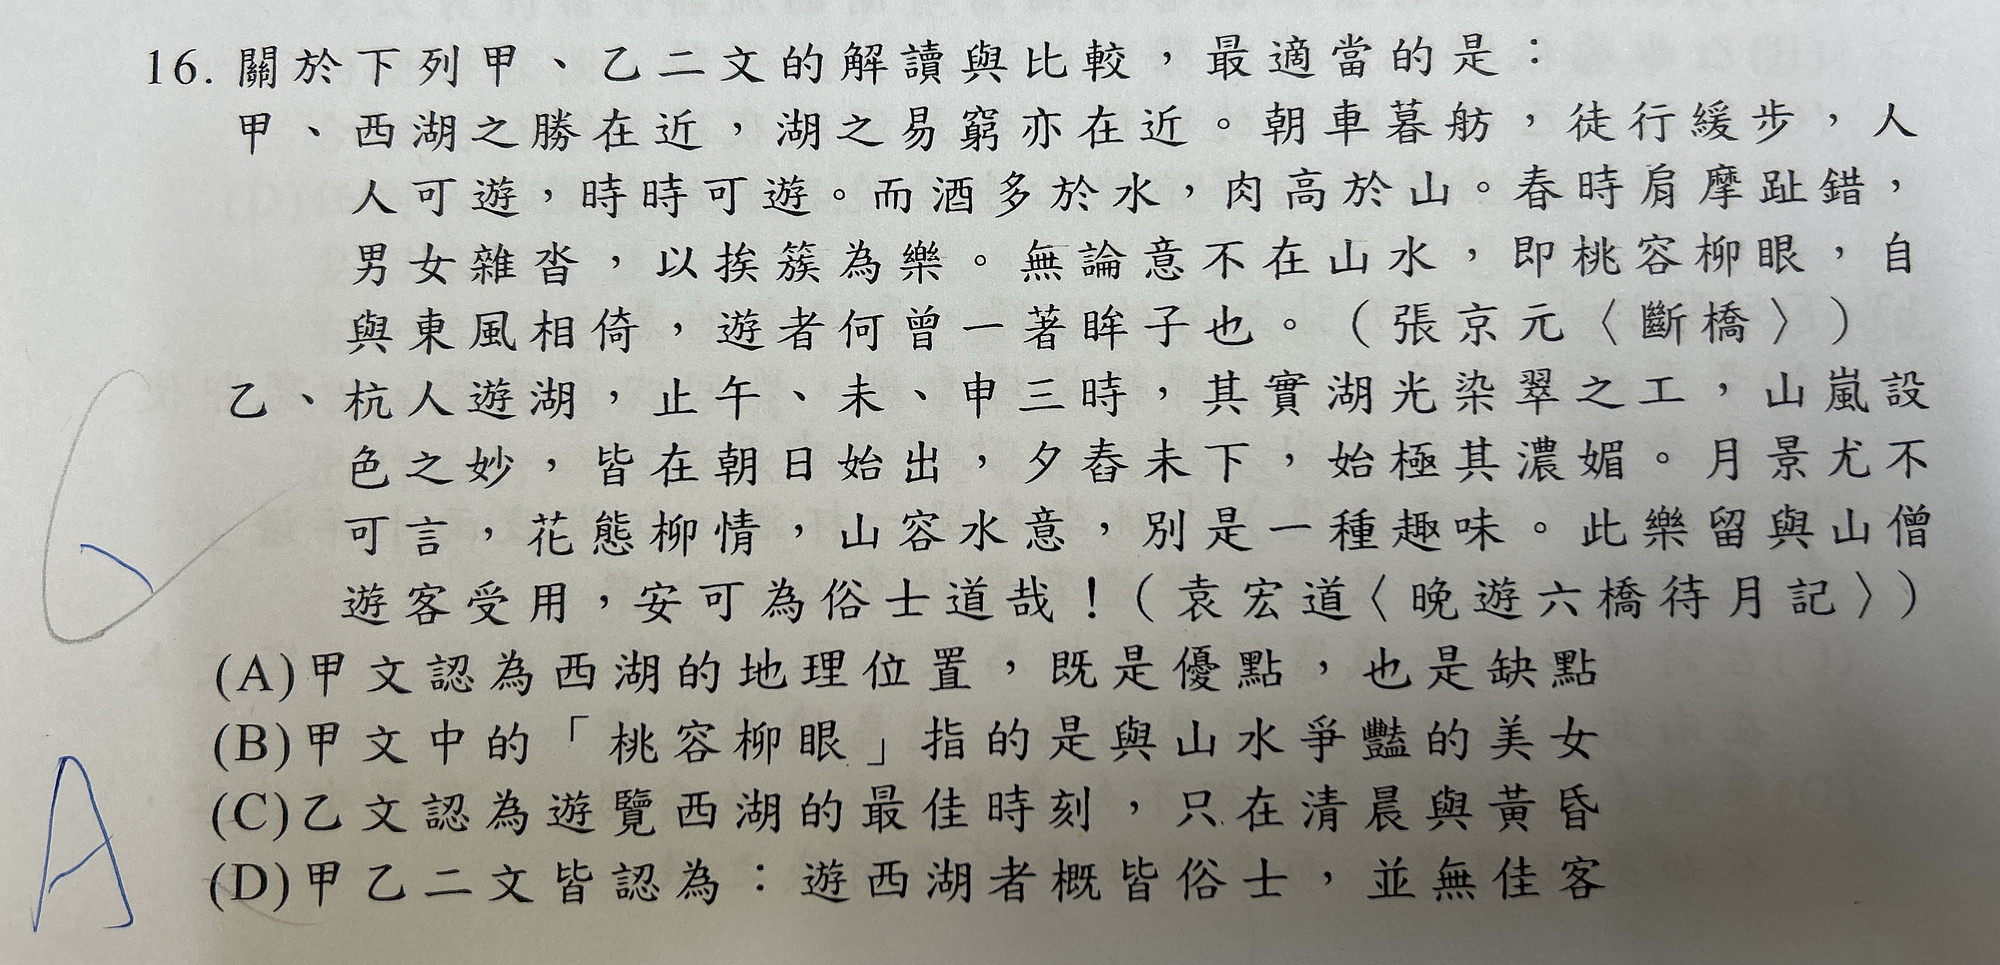 16. 關於下列甲、乙二文的解讀與比較，最適當的是：
甲、西湖之勝在近，湖之易窮亦在近。朝車暮舫，徒行緩步，人
人可遊，時時可遊。而酒多於水，肉高於山。春時肩摩趾錯，
男女雜沓，以挨簇為樂。無論意不在山水，即桃容柳眼，自
與東風相倚，遊者何曾一著眸子也。（張京元〈斷橋〉）
乙、杭人遊湖，止午、未、申三時，其實湖光染翠之工，山嵐設
色之妙，皆在朝日始出，夕舂未下，始極其濃媚。月景尤不
可言，花態柳情，山容水意，別是一種趣味。此樂留與山僧
遊客受用，安可為俗士道哉！（袁宏道〈晚遊六橋待月記〉）
(A)甲文認為西湖的地理位置，既是優點，也是缺點
(B)甲文中的「桃容柳眼」指的是與山水爭豔的美女
(C)乙文認為遊覽西湖的最佳時刻，只在清晨與黃昏
(D)甲乙二文皆認為：遊西湖者概皆俗士，並無佳客
A